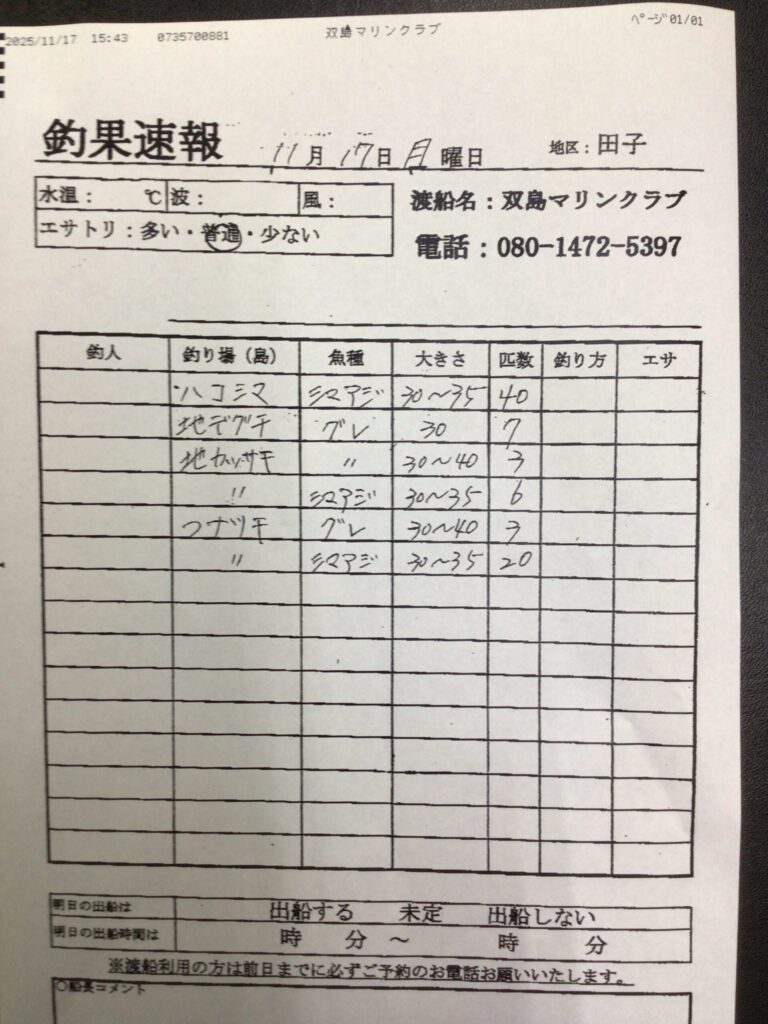 2025/11/17 15:43 0735700881 双島マリンクラブ ページ01/01
釣果速報 11月17日月曜日 地区：田子
水温： ℃ 波： 風：
エサトリ：多い・普通・少ない
渡船名：双島マリンクラブ
電話：080-1472-5397
釣人 釣り場（島） 魚種 大きさ 匹数 釣り方 エサ
ハコシマ シマアジ 30～35 40
地デグチ グレ 30 7
地カツサキ 〃 30～40 3
〃 シマアジ 30～35 6
コナツキ グレ 30～40 3
〃 シマアジ 30～35 20
明日の出船は 出船する 未定 出船しない
明日の出船時間は 時 分 ～ 時 分
※渡船利用の方は前日までに必ずご予約のお電話お願いいたします。
○船長コメント